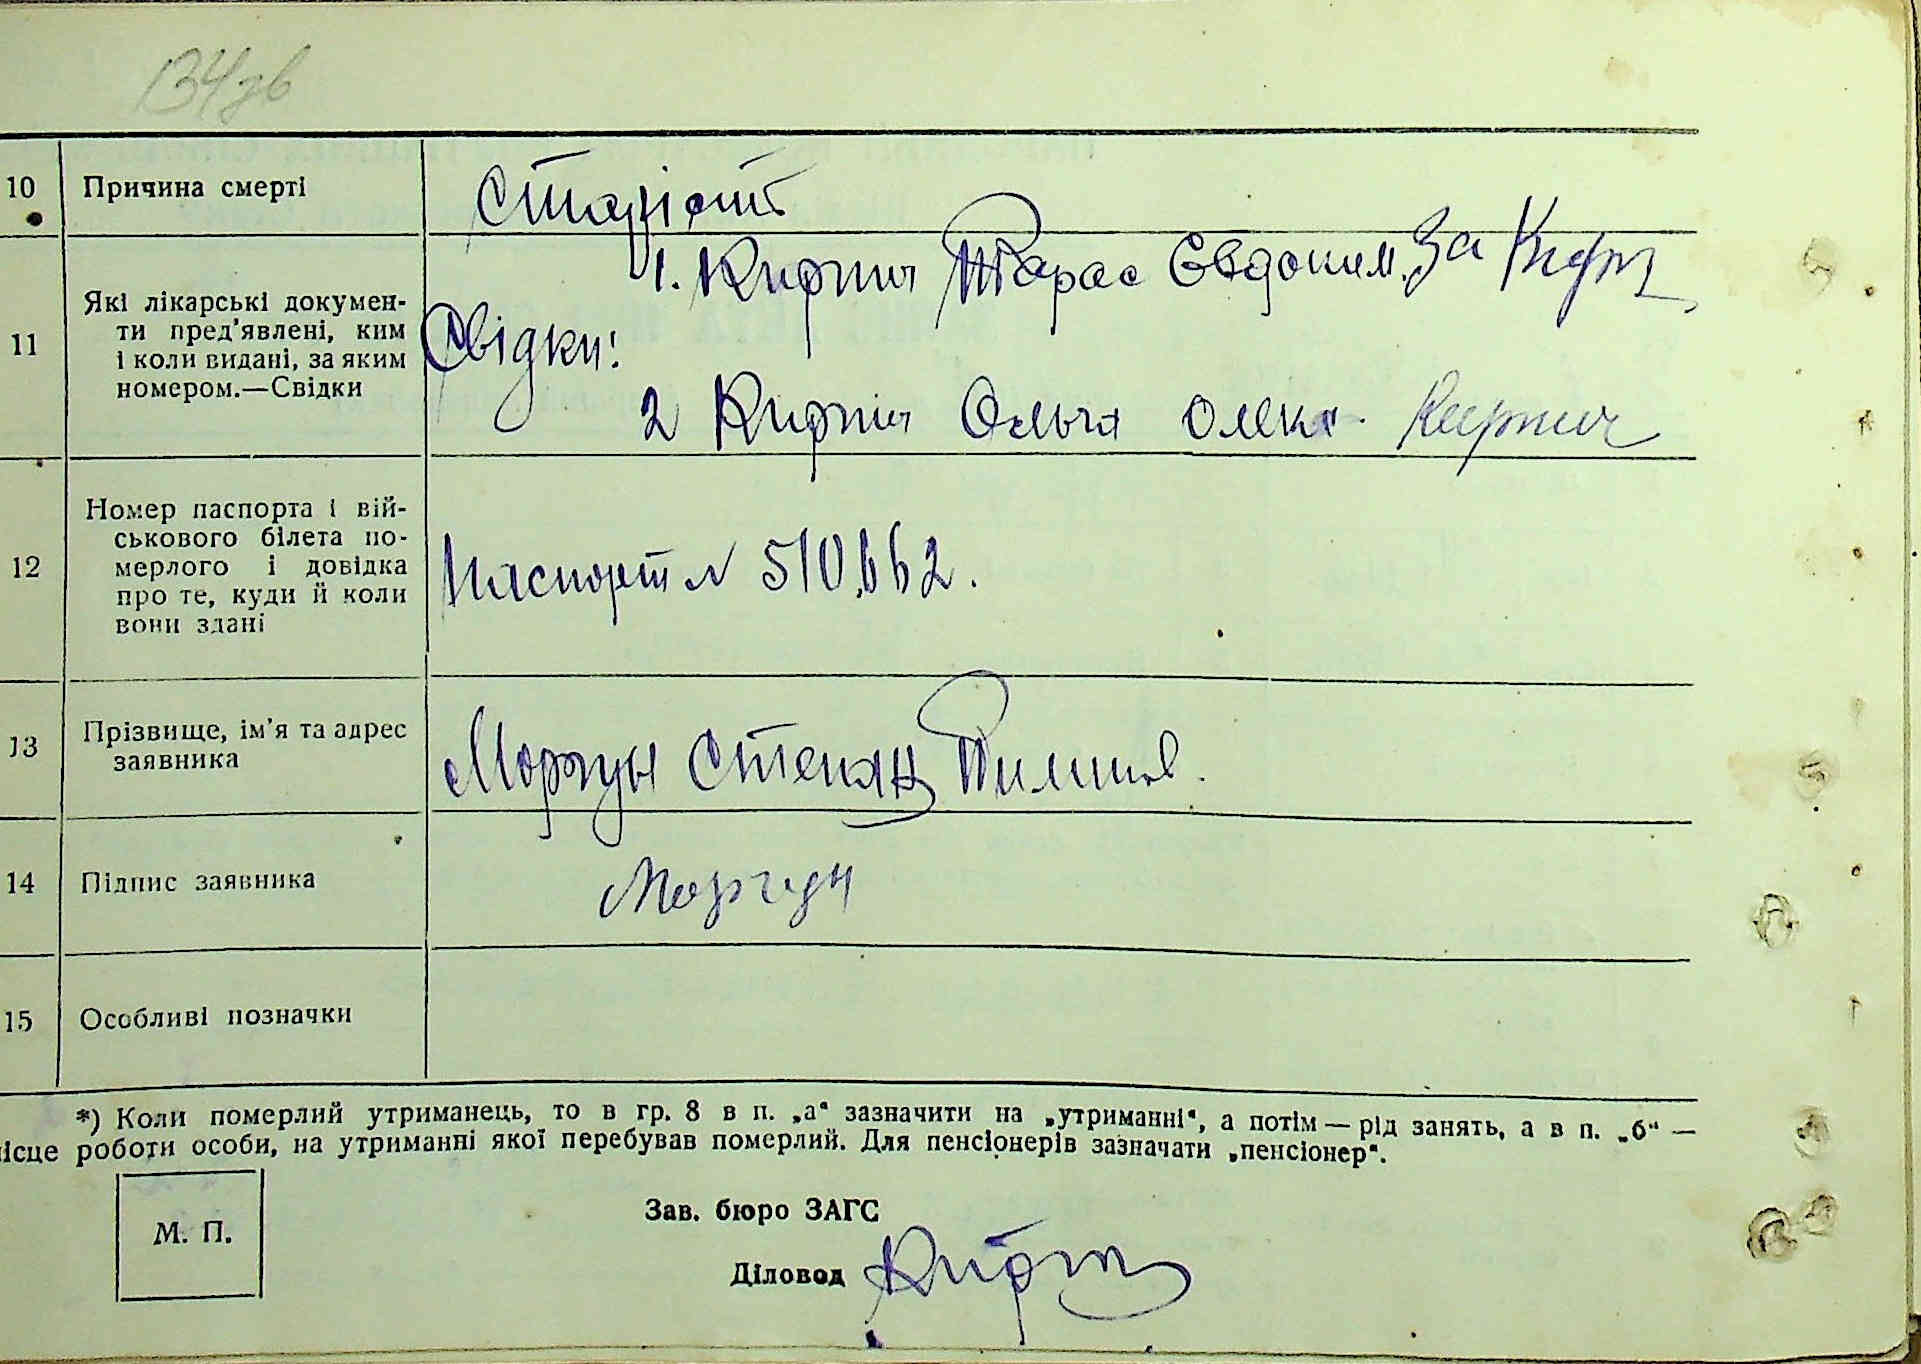 134зв
10 Причина смерті Старість
1. Кирпич Тарас Євдоким. За Кирп
11 Які лікарські докумен-
ти пред'явлені, ким
і коли видані, за яким
номером.—Свідки
Свідки:
2 Кирпич Ольга Олекс. Кирпич
12 Номер паспорта і вій-
ськового білета по-
мерлого і довідка
про те, куди й коли
вони здані
Паспорт № 510,662.
13 Прізвище, ім'я та адрес
заявника
Моргун Степан Пилипов.
14 Підпис заявника Моргун
15 Особливі позначки
*) Коли померлий утриманець, то в гр. 8 в п. „а“ зазначити на „утриманні“, а потім — рід занять, а в п. „б“ —
ісце роботи особи, на утриманні якої перебував померлий. Для пенсіонерів зазначати „пенсіонер“.
М. П.
Зав. бюро ЗАГС
Діловод Кирп